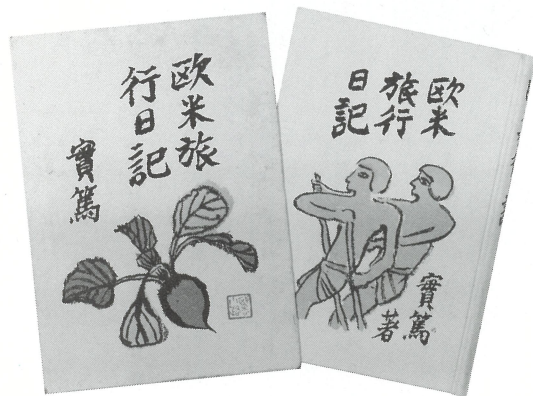 欧米旅
行日記
實篤
欧米
旅行
日記
實篤
著